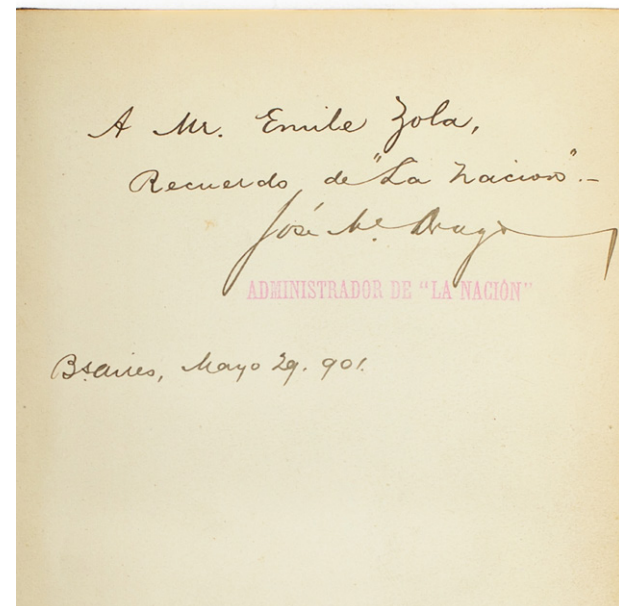 A Mr. Emile Zola,
Recuerdo de "La Nacion".-
José Mª Drago
ADMINISTRADOR DE "LA NACIÓN"
Bs. Aires, Mayo 29. 901.